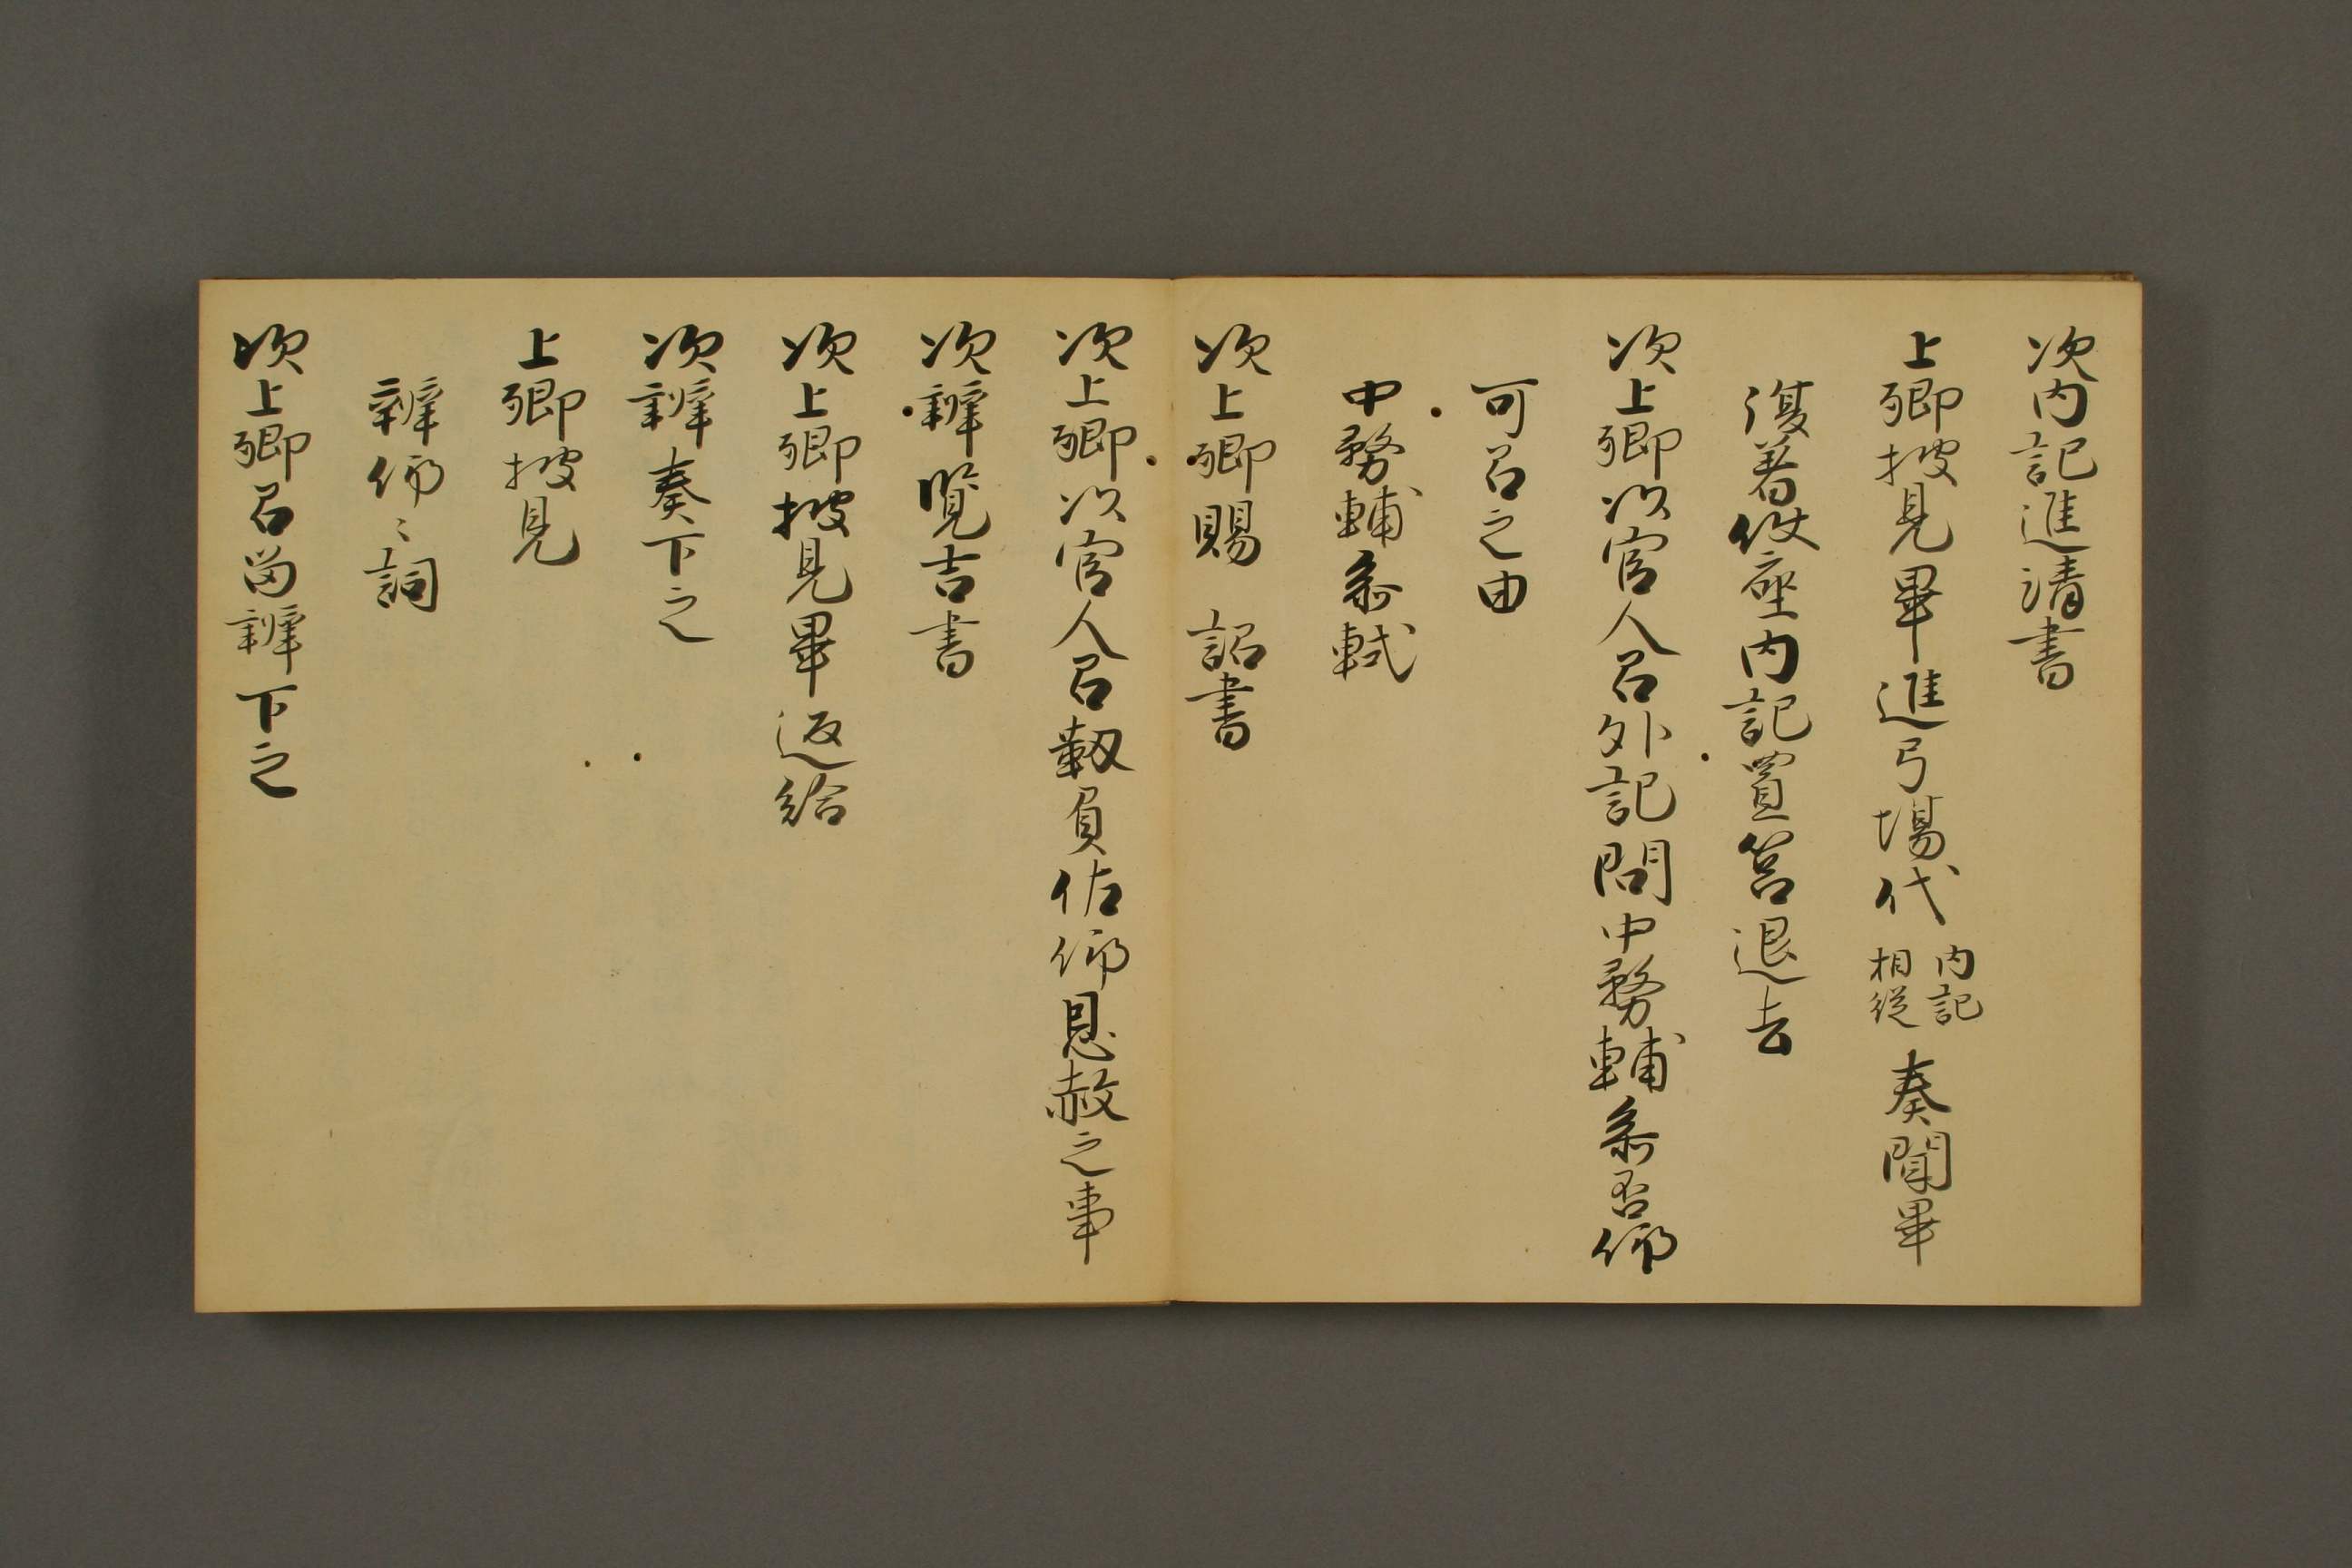 次内記進清書
上卿披見畢進弓場代内記相従奏聞畢
復著仗座内記置筥退去
次上卿以官人召外記問中務輔参否仰
可召之由
中務輔参軾
次上卿賜 詔書
次上卿以官人召靫負佐仰恩赦之事
次辨覧吉書
次上卿披見畢返給
次辨奏下之
上卿披見
辨仰々詞
次上卿召留辨下之